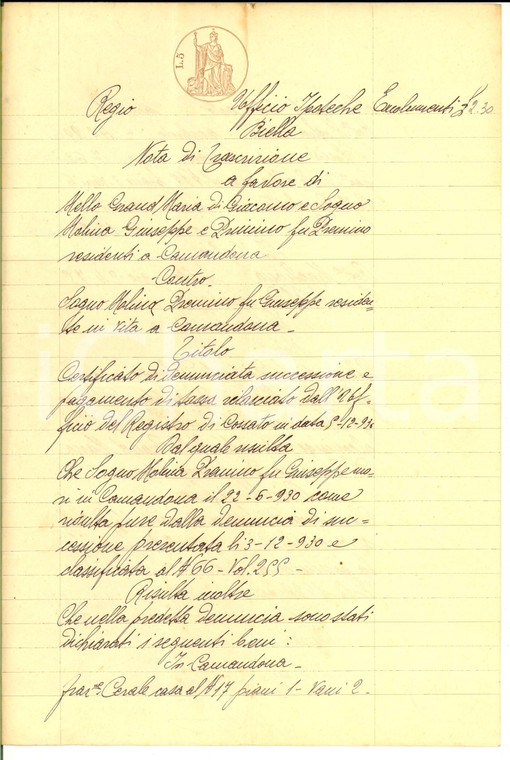 L.5
Regio Ufficio Ipoteche Emolumenti £ 2.30
Biella
Nota di Trascrizione
a favore di
Mello Grand Maria di Giacomo e Sogno
Molina Giuseppe e Premino fu Premino
residenti a Camandona
Contro
Sogno Molina Premino fu Giuseppe residen=
te in vita a Camandona_
Titolo
Certificato di denunciata successione e
pagamento di tassa rilasciato dall'Uf=
ficio del Registro di Cossato in data 5-12-930
Dal quale risulta
Che Sogno Molina Premino fu Giuseppe mo=
rì in Camandona il 22-6-930 come
risulta pure dalla denuncia di suc=
cessione presentata li 3-12-930 e
classificata al N 66 - Vol. 255 -
Risulta inoltre
Che nella predetta denuncia sono stati
dichiarati i seguenti beni:
In Camandona_
fraz.ne Cerale casa al N 17 piani 1 - Vani 2 -